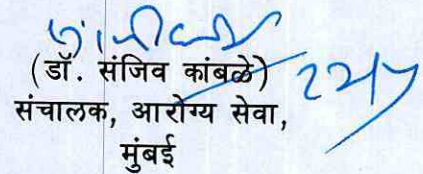 (डॉ. संजिव कांबळे)
संचालक, आरोग्य सेवा,
मुंबई